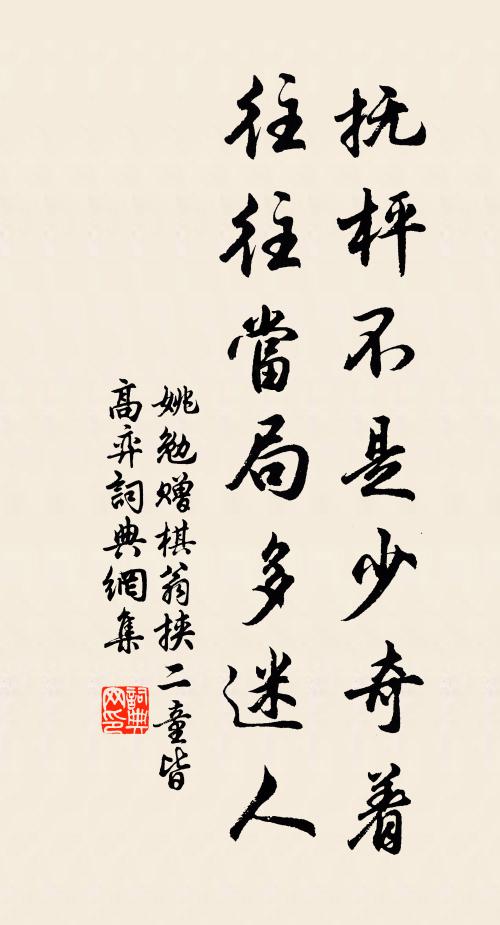 抚枰不是少奇着
往往當局多迷人
姚勉赠棋翁挟二童皆
高弈詞典網集
詞典網印